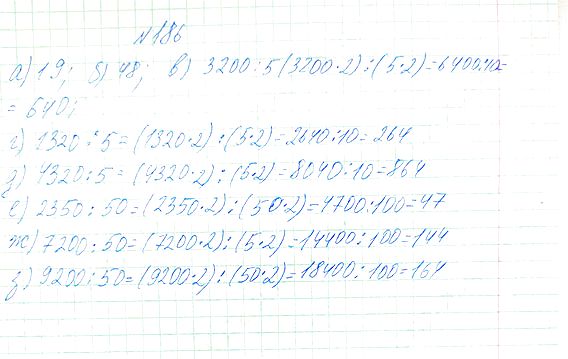 №186
а) 19; б) 48; в) 3200:5(3200·2):(5·2)=6400:10=
=640;
г) 1320:5=(1320·2):(5·2)=2640:10=264
д) 4320:5=(4320·2):(5·2)=8040:10=864
е) 2350:50=(2350·2):(50·2)=4700:100=47
ж) 7200:50=(7200·2):(5·2)=14400:100=144
з) 9200:50=(9200·2):(50·2)=18400:100=164